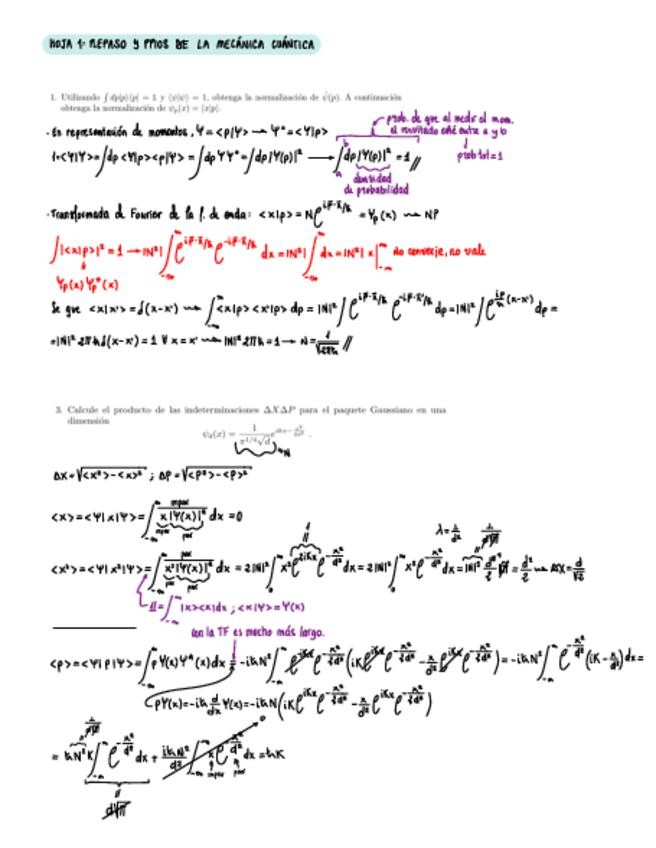 HOJA 1: REPASO Y PPIOS DE LA MECÁNICA CUÁNTICA
1. Utilizando ∫ dp|p⟩⟨p| = 1 y ⟨ψ|ψ⟩ = 1, obtenga la normalización de ψ̃(p). A continuación
obtenga la normalización de ψ_p(x) = ⟨x|p⟩.
prob. de que al medir el mom.
el resultado esté entre a y b
prob tot = 1
· En representación de momentos, Ψ = <p|Ψ> → Ψ* = <Ψ|p>
1 = <Ψ|Ψ> = ∫dp <Ψ|p><p|Ψ> = ∫dp Ψ Ψ* = ∫dp |Ψ(p)|² → ∫_a^b dp |Ψ(p)|² = 1 //
densidad
de probabilidad
· Transformada de Fourier de la f. de onda: <x|p> = N e^{i p·x/ħ} = Ψp(x) → NP
∫|<x|p>|² = 1 → |N²| ∫_{-∞}^{∞} e^{i p·x/ħ} e^{-i p·x/ħ} dx = |N²| ∫_{-∞}^{∞} dx = |N²| x|_{-∞}^{∞} no converje, no vale
Ψp(x) Ψp*(x)
Se que <x|x'> = δ(x-x') → ∫_{-∞}^{∞} <x|p> <x'|p> dp = |N|² ∫ e^{i p·x/ħ} e^{-i p·x'/ħ} dp = |N|² ∫ e^{ip/ħ (x-x')} dp =
= |N|² 2πħ δ(x-x') = 1 ∀ x = x' → |N|² 2πħ = 1 → N = 1/√2πħ //
3. Calcule el producto de las indeterminaciones ΔXΔP para el paquete Gaussiano en una
dimensión
ψ_d(x) = 1/(π^{1/4}√d) e^{ikx - x²/2d²} .
N
ΔX = √<x²>-<x>² ; ΔP = √<P²>-<P>²
<x> = <Ψ|x|Ψ> = ∫_{-∞}^{∞} x|Ψ(x)|² dx = 0
impar
impar par
<x²> = <Ψ|x²|Ψ> = ∫_{-∞}^{∞} x²|Ψ(x)|² dx = 2|N|² ∫_0^∞ x² e^{2ikx} e^{-x²/d²} dx = 2|N|² ∫_0^∞ x² e^{-x²/d²} dx = |N|² d³/2 √π = d²/2 → ΔX = d/√2
par
par par
1
λ = 1/d²
1/d√π
1 = ∫_{-∞}^{∞} |x><x| dx ; <x|Ψ> = Ψ(x)
con la TF es mucho más largo.
<p> = <Ψ|P|Ψ> = ∫_{-∞}^{∞} p Ψ(x) Ψ*(x) dx = -iħN² ∫_{-∞}^{∞} e^{-ikx} e^{-x²/2d²} (ik e^{ikx} e^{-x²/2d²} - x/d² e^{ikx} e^{-x²/2d²}) = -iħN² ∫_{-∞}^{∞} e^{-x²/d²} (ik - x/d²) dx =
PΨ(x) = -iħ d/dx Ψ(x) = -iħN (ik e^{ikx} e^{-x²/2d²} - x/d² e^{ikx} e^{-x²/2d²})
= ħN²k ∫_{-∞}^{∞} e^{-x²/d²} dx + iħN²/d² ∫_{-∞}^{∞} x e^{-x²/d²} dx = ħk
1/d√π
0
impar par
d√π